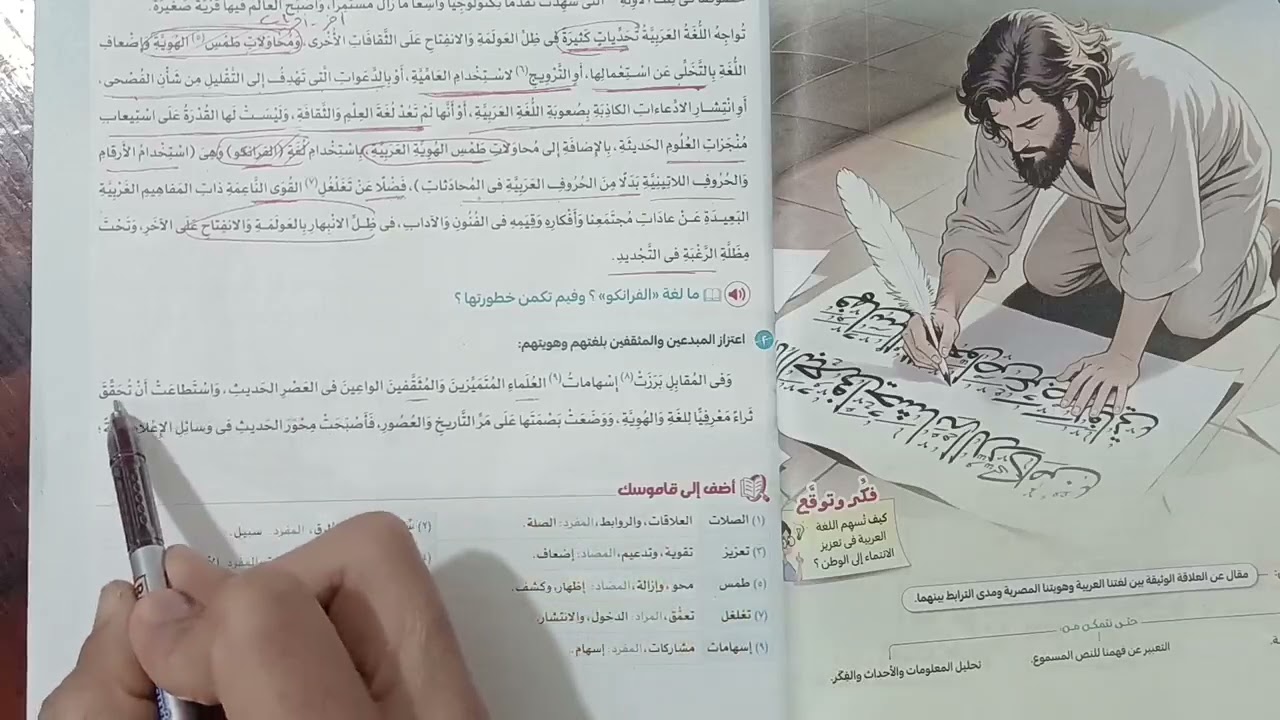 التى شهدت تقدمًا تكنولوجيًّا واسعًا ما زال مستمرًا، وأصبح العالم فيها قرية صغيرة.
تُواجِهُ اللُّغَةُ العَرَبِيَّةُ تَحَدِّياتٍ كَثِيرَةً فِى ظِلِّ العَوْلَمَةِ وَالانْفِتاحِ عَلَى الثَّقافاتِ الأُخْرَى، وَمُحَاوَلاتِ طَمْسِ (٥) الهُوِيَّةِ وَإِضْعافِ
اللُّغَةِ بِالتَّخَلِّى عَنِ اسْتِعْمالِها، أَوِ التَّرْوِيجِ (٦) لاسْتِخْدامِ العامِّيَّةِ، أَوْ بِالدَّعَواتِ الَّتى تَهْدِفُ إِلى التَّقْلِيلِ مِن شَأْنِ الفُصْحَى،
أَوِ انْتِشارِ الادِّعاءاتِ الكاذِبَةِ بِصُعوبَةِ اللُّغَةِ العَرَبِيَّةِ، أَوْ أَنَّها لَمْ تَعُدْ لُغَةَ العِلْمِ وَالثَّقافَةِ، وَلَيْسَتْ لَها القُدْرَةُ عَلَى اسْتِيعابِ
مُنْجَزاتِ العُلُومِ الحَدِيثَةِ، بِالإِضافَةِ إِلى مُحَاوَلاتِ طَمْسِ الهُوِيَّةِ العَرَبِيَّةِ بِاسْتِخْدامِ لُغَةِ (الفرانكو) وَهِىَ (اسْتِخْدامُ الأَرقامِ
وَالحُرُوفِ اللاتِينِيَّةِ بَدَلًا مِنَ الحُروفِ العَرَبِيَّةِ فى المُحادَثاتِ)، فَضْلًا عَنْ تَغَلْغُلِ (٧) القُوَى النَّاعِمَةِ ذاتِ المَفاهِيمِ الغَرْبِيَّةِ
البَعِيدَةِ عَنْ عاداتِ مُجْتَمَعِنا وَأَفْكارِهِ وَقِيَمِهِ فِى الفُنُونِ وَالآدابِ، فى ظِلِّ الانْبِهارِ بِالعَوْلَمَةِ وَالانْفِتاحِ عَلَى الآخَرِ، وَتَحْتَ
مِظَلَّةِ الرَّغْبَةِ فى التَّجْدِيدِ.
ما لغة «الفرانكو»؟ وفيم تكمن خطورتها؟
٢ اعتزاز المبدعين والمثقفين بلغتهم وهويتهم:
وَفى المُقابِلِ بَرَزَتْ (٨) إِسْهاماتُ (٩) العُلَماءِ المُتَمَيِّزِينَ وَالمُثَقَّفِينَ الواعِينَ فى العَصْرِ الحَدِيثِ، وَاسْتَطاعَتْ أَنْ تُحَقِّقَ
ثَراءً مَعْرِفِيًّا لِلُّغَةِ وَالهُوِيَّةِ، وَوَضَعَتْ بَصْمَتَها عَلَى مَرِّ التَّاريخِ وَالعُصُورِ، فَأَصْبَحَتْ مِحْوَرَ الحَدِيثِ فى وَسائِلِ
أضف إلى قاموسك
(١) الصلات العلاقات، والروابط، المفرد: الصلة.
(٢) المفرد: سبيل.
(٣) تعزيز تقوية، وتدعيم، المضاد: إضعاف.
(٥) طمس محو، وإزالة، المضاد: إظهار، وكشف.
(٧) تغلغل تعمُّق، المراد: الدخول، والانتشار.
(٩) إسهامات مشاركات، المفرد: إسهام.
فكِّر وتوقَّع
كيف تُسهِم اللغة
العربية فى تعزيز
الانتماء إلى الوطن؟
مقال عن العلاقة الوثيقة بين لغتنا العربية وهويتنا المصرية ومدى الترابط بينهما.
حتى نتمكن من:
التعبير عن فهمنا للنص المسموع.
تحليل المعلومات والأحداث والفِكَر.